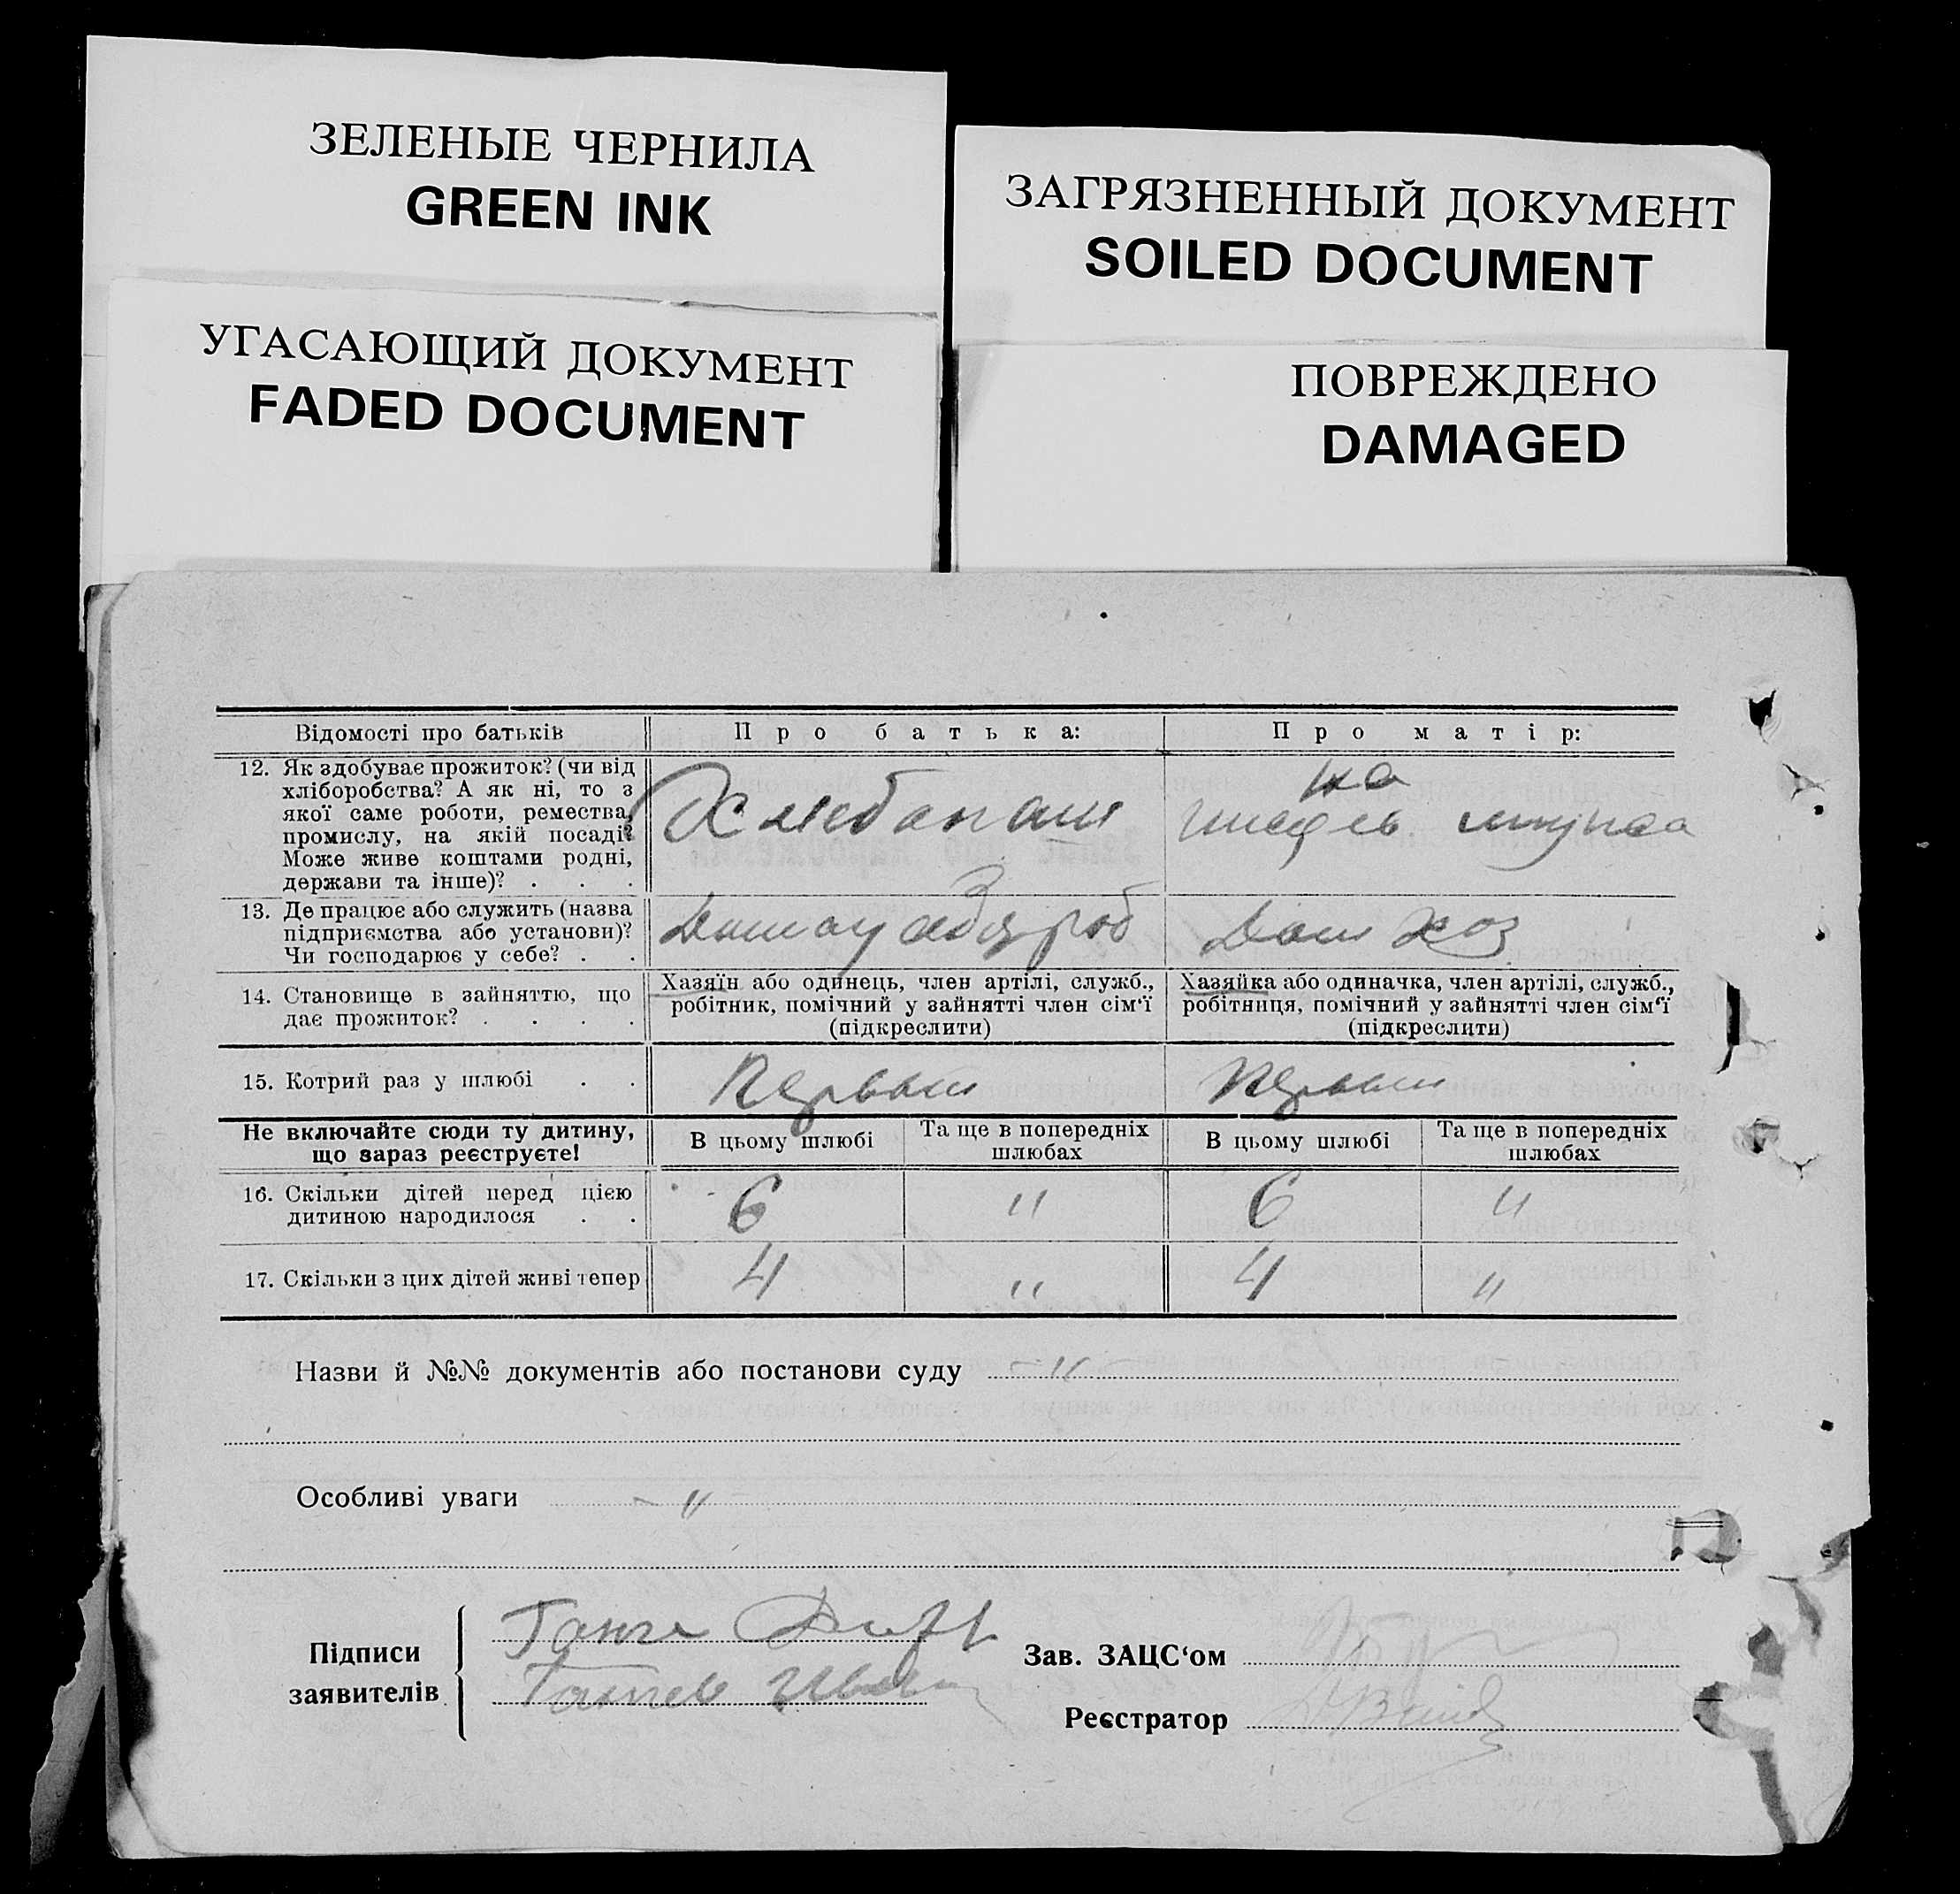 ЗЕЛЕНЫЕ ЧЕРНИЛА
GREEN INK
ЗАГРЯЗНЕННЫЙ ДОКУМЕНТ
SOILED DOCUMENT
УГАСАЮЩИЙ ДОКУМЕНТ
FADED DOCUMENT
ПОВРЕЖДЕНО
DAMAGED
Відомості про батьків
Про батька:
Про матір:
12. Як здобуває прожиток? (чи від
хліборобства? А як ні, то з
якої саме роботи, ремества,
промислу, на якій посаді?
Може живе коштами родні,
держави та інше)? . . .
на
13. Де працює або служить (назва
підприємства або установи)?
Чи господарює у себе? . .
Дом хоз
14. Становище в зайняттю, що
дає прожиток? . . . .
Хазяїн або одинець, член артілі, служб.,
робітник, помічний у зайнятті член сім‘ї
(підкреслити)
Хазяйка або одиначка, член артілі, служб.,
робітниця, помічний у зайнятті член сім‘ї
(підкреслити)
15. Котрий раз у шлюбі . .
Первый
Первый
Не включайте сюди ту дитину,
що зараз реєструєте!
В цьому шлюбі
Та ще в попередніх
шлюбах
В цьому шлюбі
Та ще в попередніх
шлюбах
16. Скільки дітей перед цією
дитиною народилося . .
6 " 6 "
17. Скільки з цих дітей живі тепер
4 " 4 "
Назви й №№ документів або постанови суду – " –
Особливі уваги – " –
Підписи
заявителів
Зав. ЗАЦС‘ом
Реєстратор